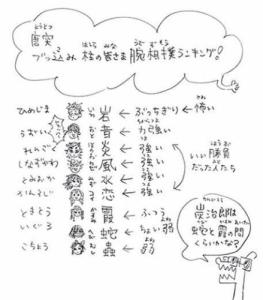 とうとつ
唐突
はしら みな うで ずもう
ブッ込み 柱の皆さま 腕相撲ランキング!
ひめじま いわ 岩 ← ぶっちぎり ← 怖い
うずい おと 音 ← 力強い
れんごく ほのお 炎 ← 強い
しなずがわ かぜ 風 ← 強い
とみおか みず 水 ← 強い
かんろじ こい 恋 ← 強い
ときとう かすみ 霞 ← ふつう
いぐろ へび 蛇 ← ちょい弱
こちょう むし 蟲 ← 弱
いい勝負
だった人たち
炭治郎は
蛇と霞の間
くらいかな?